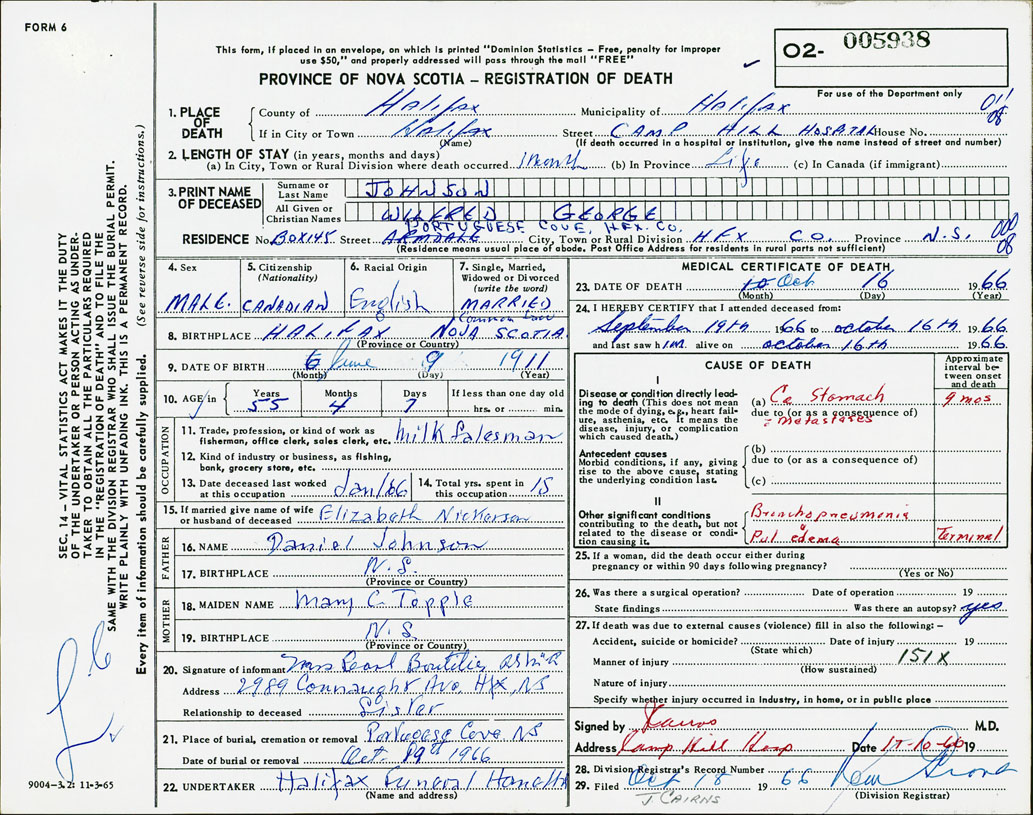 FORM 6
This form, if placed in an envelope, on which is printed "Dominion Statistics – Free, penalty for improper
use $50," and properly addressed will pass through the mail "FREE"
PROVINCE OF NOVA SCOTIA – REGISTRATION OF DEATH
O2- 005938
For use of the Department only
SEC. 14 – VITAL STATISTICS ACT MAKES IT THE DUTY
OF THE UNDERTAKER OR PERSON ACTING AS UNDER-
TAKER TO OBTAIN ALL THE PARTICULARS REQUIRED
IN THE "REGISTRATION OF DEATH" AND TO FILE
SAME WITH THE DIVISION REGISTRAR WHO SHALL ISSUE THE BURIAL PERMIT.
WRITE PLAINLY WITH UNFADING INK. THIS IS A PERMANENT RECORD.
Every item of information should be carefully supplied. (See reverse side for instructions.)
1. PLACE OF DEATH
County of Halifax Municipality of Halifax
If in City or Town Halifax Street CAMP HILL HOSPITAL House No.
(Name) (If death occurred in a hospital or institution, give the name instead of street and number)
2. LENGTH OF STAY (in years, months and days)
(a) In City, Town or Rural Division where death occurred 1 month (b) In Province Life (c) In Canada (if immigrant)
3. PRINT NAME OF DECEASED
Surname or Last Name JOHNSON
All Given or Christian Names WILFRED GEORGE
PORTUGUESE COVE, HFX. CO.
RESIDENCE No. BOX 145 Street ARMDALE City, Town or Rural Division HFX CO. Province N.S.
(Residence means usual place of abode. Post Office Address for residents in rural parts not sufficient)
4. Sex MALE
5. Citizenship (Nationality) CANADIAN
6. Racial Origin English
7. Single, Married, Widowed or Divorced (write the word) MARRIED
Common Law
8. BIRTHPLACE HALIFAX NOVA SCOTIA
(Province or Country)
9. DATE OF BIRTH 6 June 9 1911
(Month) (Day) (Year)
10. AGE in Years 55 Months 4 Days 7 If less than one day old hrs. or min.
OCCUPATION
11. Trade, profession, or kind of work as
fisherman, office clerk, sales clerk, etc. Milk Salesman
12. Kind of industry or business, as fishing,
bank, grocery store, etc.
13. Date deceased last worked at this occupation Jan/66
14. Total yrs. spent in this occupation 15
15. If married give name of wife
or husband of deceased Elizabeth Nickerson
FATHER
16. NAME Daniel Johnson
17. BIRTHPLACE N.S.
(Province or Country)
MOTHER
18. MAIDEN NAME Mary C Topple
19. BIRTHPLACE N.S.
(Province or Country)
20. Signature of informant Mrs Pearl Boutilier
Address 2989 Connaught Ave Hfx, NS
Relationship to deceased Sister
21. Place of burial, cremation or removal Portugese Cove NS
Date of burial or removal Oct. 19th 1966
22. UNDERTAKER Halifax Funeral Home
(Name and address)
9004-3.2: 11-3-65
MEDICAL CERTIFICATE OF DEATH
23. DATE OF DEATH 10 Oct 16 1966
(Month) (Day) (Year)
24. I HEREBY CERTIFY that I attended deceased from:
September 19th 1966 to October 16th 1966
and last saw him alive on October 16th 1966
CAUSE OF DEATH
Approximate interval between onset and death
I
Disease or condition directly leading to death (This does not mean the mode of dying, e.g., heart failure, asthenia, etc. It means the disease, injury, or complication which caused death.)
(a) Ca Stomach 9 mos
due to (or as a consequence of)
metastases
Antecedent causes
Morbid conditions, if any, giving rise to the above cause, stating the underlying condition last.
(b)
due to (or as a consequence of)
(c)
II
Other significant conditions contributing to the death, but not related to the disease or condition causing it.
Bronchopneumonia
Pul edema Terminal
25. If a woman, did the death occur either during
pregnancy or within 90 days following pregnancy?
(Yes or No)
26. Was there a surgical operation? Date of operation 19
State findings Was there an autopsy? yes
27. If death was due to external causes (violence) fill in also the following: –
Accident, suicide or homicide? Date of injury 19
(State which)
Manner of injury 151X
(How sustained)
Nature of injury
Specify whether injury occurred in industry, in home, or in public place
Signed by M.D.
Address Camp Hill Hosp Date 17-10-66 19
28. Division Registrar's Record Number
29. Filed Oct 18 1966
(Division Registrar)
J CAIRNS